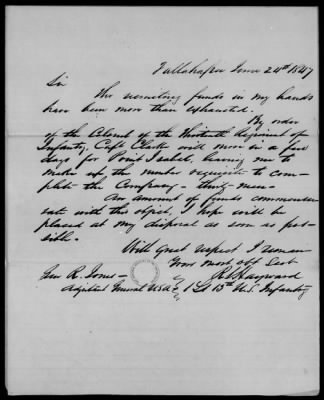 Tallahassee June 24th 1847
Sir
The recruiting funds in my hands
have been more than exhausted.
By order
of the Colonel of the Thirteenth Regiment of
Infantry, Capt Clark will move in a few
days for Point Isabel, leaving me to
make up the number requisite to com-
plete the Company - thirty men -
An amount of funds commensu-
rate with this object, I hope will be
placed at my disposal as soon as pos-
sible.
With great respect I remain
Your most obt Sevt
Gen R. Jones - R. Hayward
Adjutant General U.S.A. 1 Lt 13th U.S. Infantry